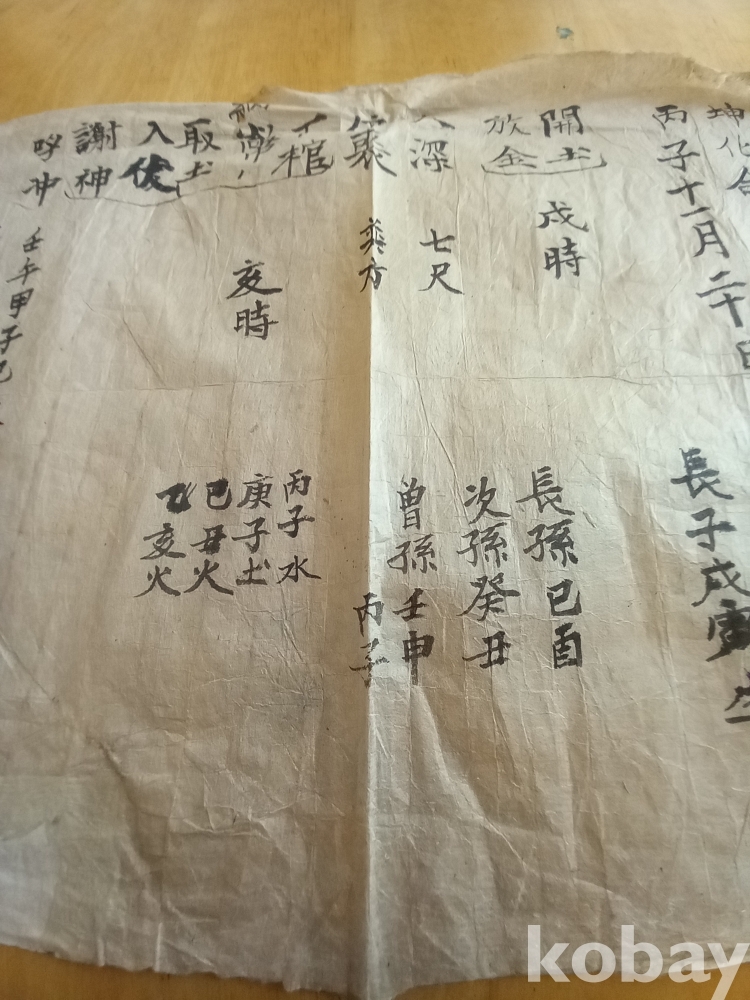 坤化命
丙子十一月二十日
長子戊寅生
開土
戌時
長孫己酉
放金
次孫癸丑
深
七尺
曾孫壬申
裏
丙子
棺
丙子水
亥時
庚子土
取土
己丑火
入
乙亥火
謝神
呼冲
壬午甲子己
kobay